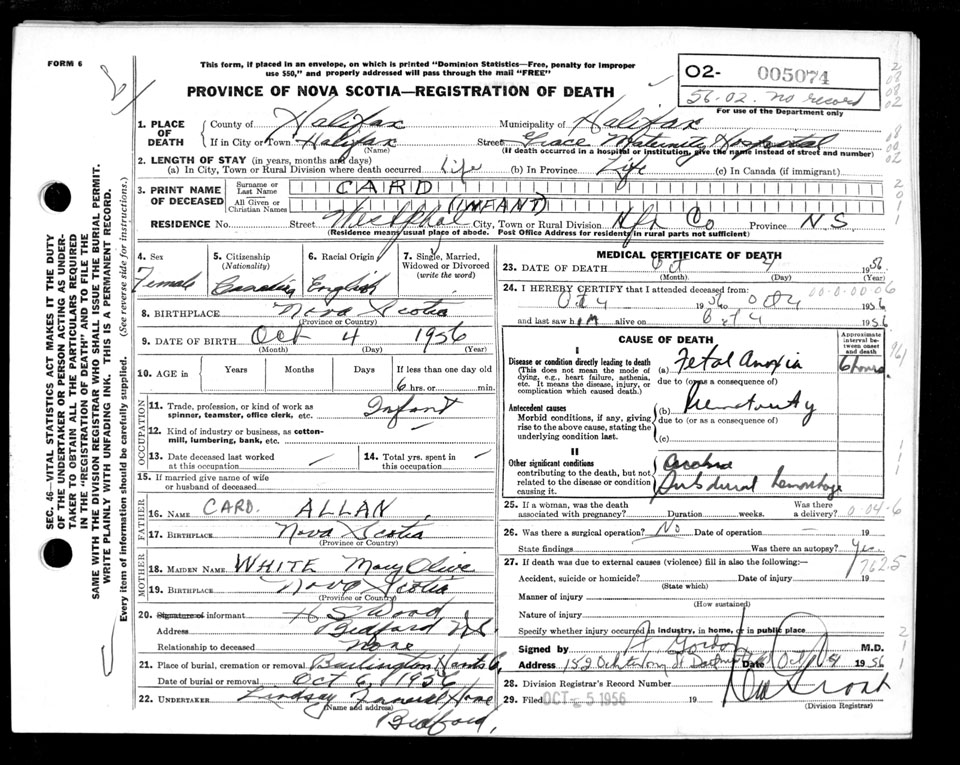 FORM 6
This form, if placed in an envelope, on which is printed "Dominion Statistics—Free, penalty for improper
use $50," and properly addressed will pass through the mail "FREE"
PROVINCE OF NOVA SCOTIA—REGISTRATION OF DEATH
02- 005074
56-02. no record
For use of the Department only
SEC. 46—VITAL STATISTICS ACT MAKES IT THE DUTY
OF THE UNDERTAKER OR PERSON ACTING AS UNDER-
TAKER TO OBTAIN ALL THE PARTICULARS REQUIRED
IN THE "REGISTRATION OF DEATH" AND TO FILE THE
SAME WITH THE DIVISION REGISTRAR WHO SHALL ISSUE THE BURIAL PERMIT.
WRITE PLAINLY WITH UNFADING INK. THIS IS A PERMANENT RECORD.
Every item of information should be carefully supplied. (See reverse side for instructions.)
1. PLACE OF DEATH
County of Halifax Municipality of Halifax
If in City or Town Halifax Street Grace Maternity Hospital
(Name) (If death occurred in a hospital or institution, give the name instead of street and number)
2. LENGTH OF STAY (in years, months and days)
(a) In City, Town or Rural Division where death occurred Life (b) In Province Life (c) In Canada (if immigrant)
3. PRINT NAME OF DECEASED
Surname or Last Name CARD
All Given or Christian Names (INFANT)
RESIDENCE No. Street Westphal City, Town or Rural Division Hfx Co Province N S
(Residence means usual place of abode. Post Office Address for residents in rural parts not sufficient)
4. Sex Female
5. Citizenship (Nationality)
6. Racial Origin English
7. Single, Married, Widowed or Divorced (write the word)
8. BIRTHPLACE Nova Scotia
(Province or Country)
9. DATE OF BIRTH Oct 4 1956
(Month) (Day) (Year)
10. AGE in Years Months Days If less than one day old
6 hrs. or min.
OCCUPATION
11. Trade, profession, or kind of work as spinner, teamster, office clerk, etc. Infant
12. Kind of industry or business, as cotton-mill, lumbering, bank, etc.
13. Date deceased last worked at this occupation
14. Total yrs. spent in this occupation
15. If married give name of wife or husband of deceased
FATHER
16. NAME CARD. ALLAN
17. BIRTHPLACE Nova Scotia
(Province or Country)
MOTHER
18. MAIDEN NAME WHITE Mary Olive
19. BIRTHPLACE Nova Scotia
(Province or Country)
20. Signature of informant H S Wood
Address Bedford N.S.
Relationship to deceased None
21. Place of burial, cremation or removal Burlington Hants Co,
Date of burial or removal Oct 6, 1956
22. UNDERTAKER Lindsay Funeral Home
(Name and address)
Bedford,
MEDICAL CERTIFICATE OF DEATH
23. DATE OF DEATH Oct 4 1956
(Month) (Day) (Year)
24. I HEREBY CERTIFY that I attended deceased from:
Oct 4 1956 to Oct 4 1956
and last saw him alive on Oct 4 1956
CAUSE OF DEATH
Approximate interval between onset and death
I
Disease or condition directly leading to death
(This does not mean the mode of dying, e.g., heart failure, asthenia, etc. It means the disease, injury, or complication which caused death.)
(a) Fetal Anoxia 6 hours
due to (or as a consequence of)
Antecedent causes
Morbid conditions, if any, giving rise to the above cause, stating the underlying condition last.
(b) Prematurity
due to (or as a consequence of)
(c)
II
Other significant conditions
contributing to the death, but not related to the disease or condition causing it.
Subdural hemorrhage
25. If a woman, was the death associated with pregnancy? Duration weeks. Was there a delivery?
0-04-6
26. Was there a surgical operation? No Date of operation 19
State findings Was there an autopsy? Yes
27. If death was due to external causes (violence) fill in also the following:— 762.5
Accident, suicide or homicide? Date of injury 19
(State which)
Manner of injury
(How sustained)
Nature of injury
Specify whether injury occurred in industry, in home, or in public place
Signed by A Gordon M.D.
Address Date Oct 4 1956
28. Division Registrar's Record Number
29. Filed OCT 5 1956 19
(Division Registrar)